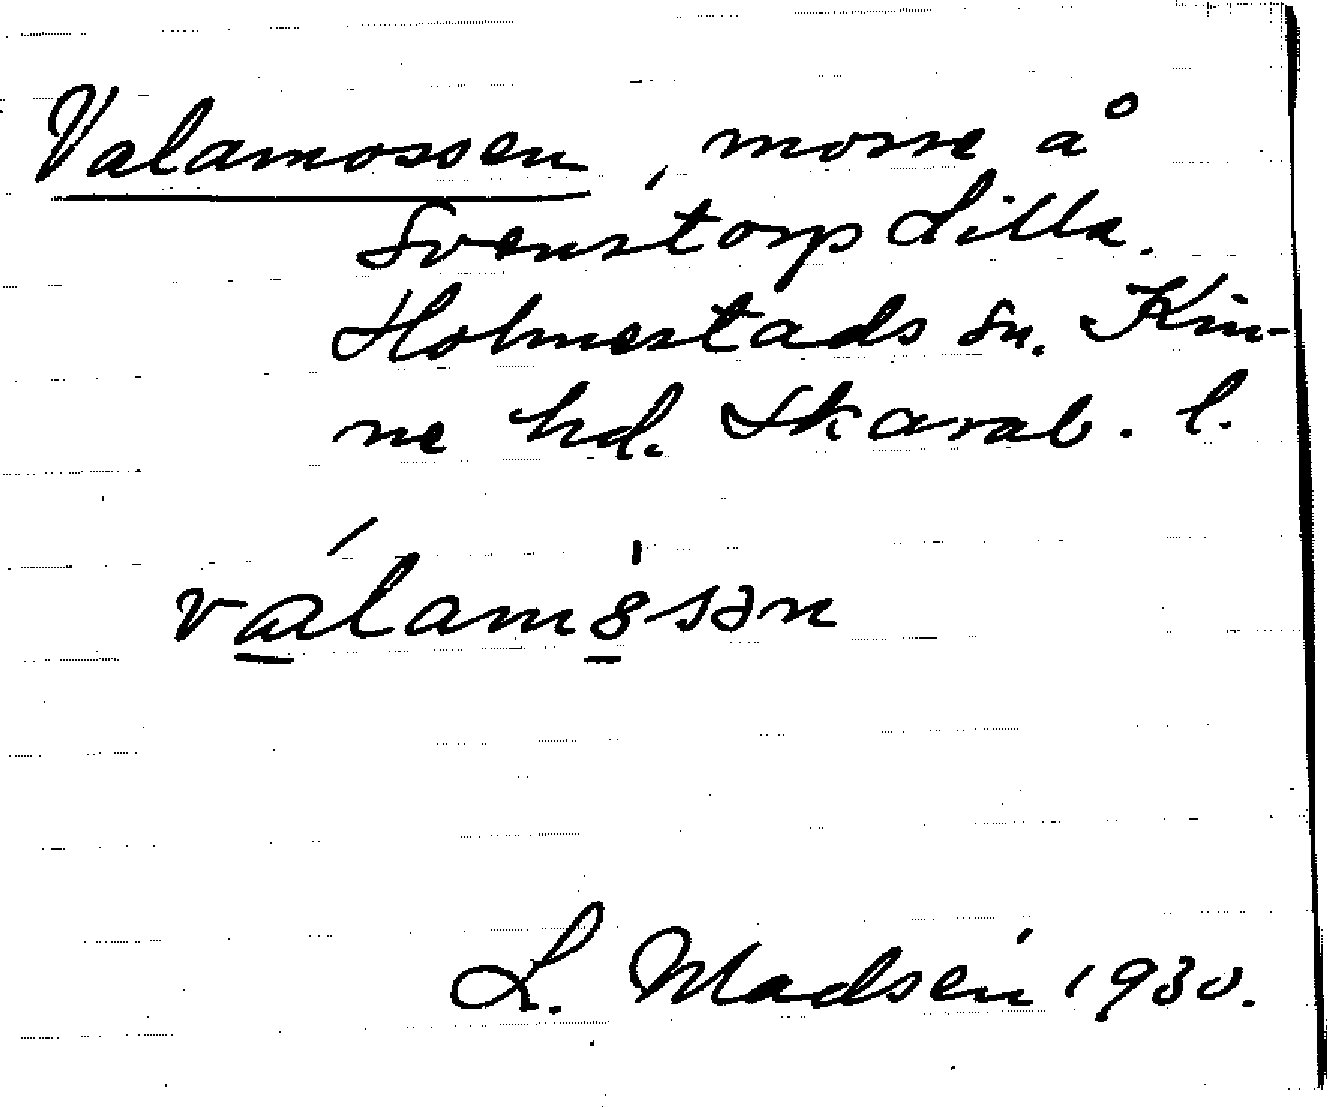 Valamossen, mosse å
Svenstorp Lilla.
Holmestads sn. Kin-
ne hd. Skarab. l.
válamȯsən
L. Madsén 1930.